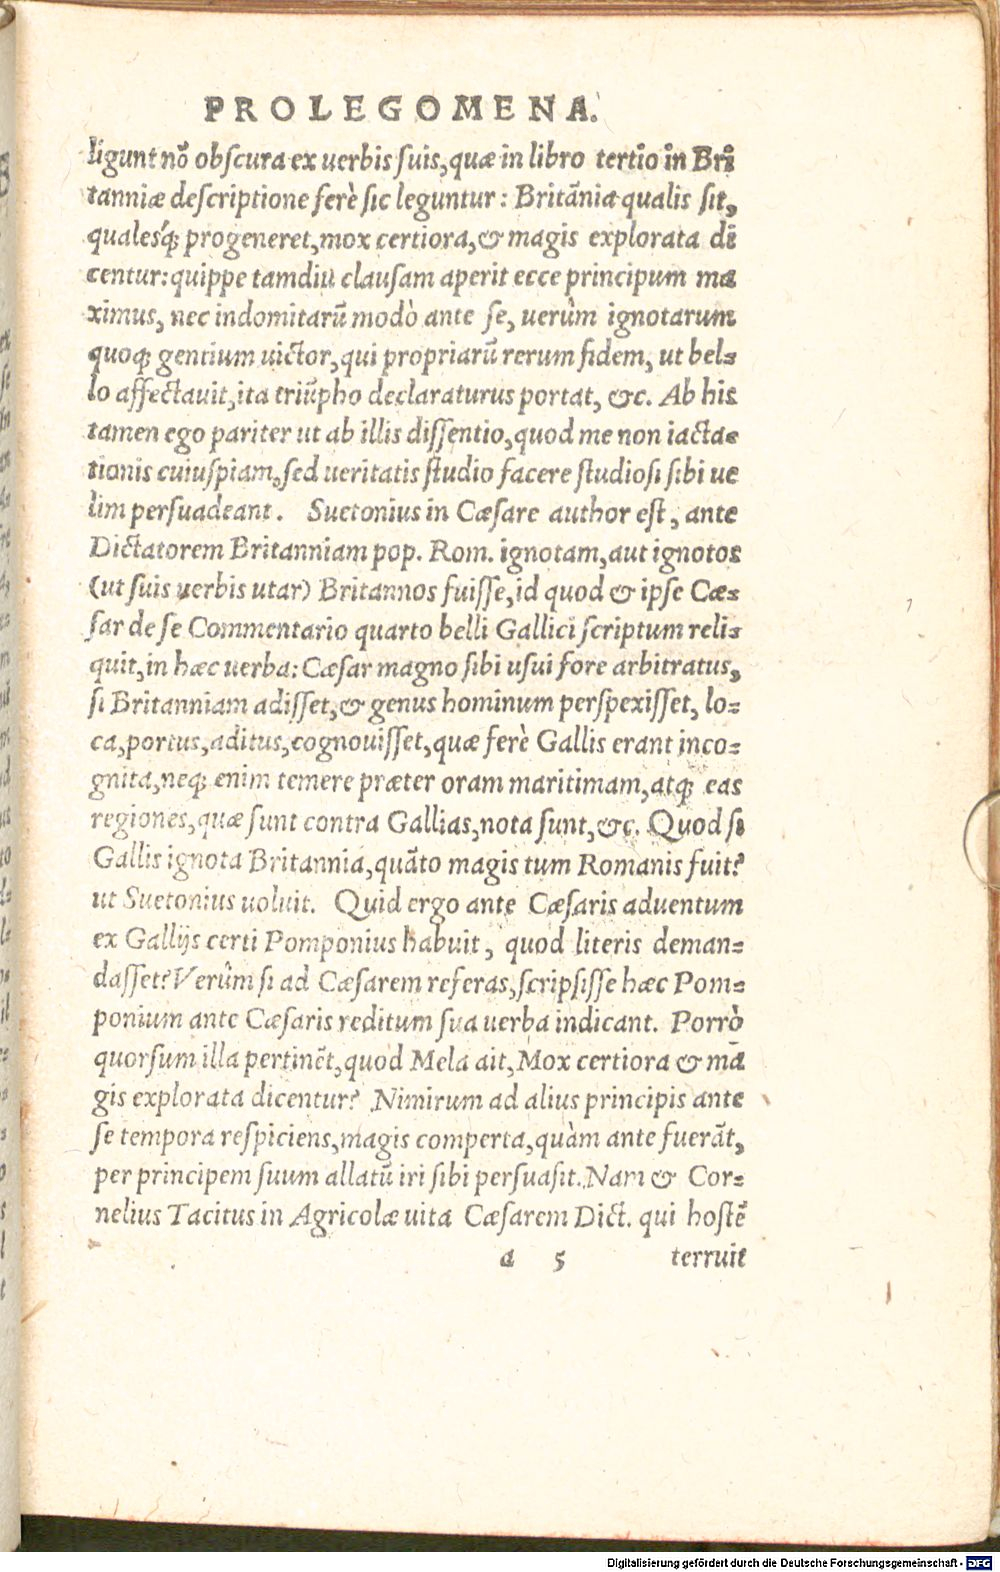 PROLEGOMENA.
ligunt nõ obscura ex uerbis suis, quæ in libro tertio in Bri
tanniæ descriptione ferè sic leguntur: Britãnia qualis sit,
qualesq́; progeneret, mox certiora, & magis explorata di
centur: quippe tamdiu clausam aperit ecce principum ma
ximus, nec indomitarũ modò ante se, uerùm ignotarum
quoq; gentium uictor, qui propriarũ rerum fidem, ut bel-
lo affectauit, ita triũpho declaraturus portat, &c. Ab his
tamen ego pariter ut ab illis dissentio, quod me non iacta-
tionis cuiuspiam, sed ueritatis studio facere studiosi sibi ue
lim persuadeant. Suetonius in Cæsare author est, ante
Dictatorem Britanniam pop. Rom. ignotam, aut ignotos
(ut suis uerbis utar) Britannos fuisse, id quod & ipse Cæ-
sar de se Commentario quarto belli Gallici scriptum reli-
quit, in hæc uerba: Cæsar magno sibi usui fore arbitratus,
si Britanniam adisset, & genus hominum perspexisset, lo-
ca, portus, aditus, cognouisset, quæ ferè Gallis erant inco-
gnita, neq; enim temere præter oram maritimam, atq; eas
regiones, quæ sunt contra Gallias, nota sunt, &c. Quod si
Gallis ignota Britannia, quãto magis tum Romanis fuit?
ut Suetonius uoluit. Quid ergo ante Cæsaris aduentum
ex Gallijs certi Pomponius habuit, quod literis deman-
dasset? Verùm si ad Cæsarem referas, scripsisse hæc Pom-
ponium ante Cæsaris reditum sua uerba indicant. Porrò
quorsum illa pertinẽt, quod Mela ait, Mox certiora & ma
gis explorata dicentur? Nimirum ad alius principis ante
se tempora respiciens, magis comperta, quàm ante fuerãt,
per principem suum allatũ iri sibi persuasit. Nam & Cor-
nelius Tacitus in Agricolæ uita Cæsarem Dict. qui hostẽ
a 5 terruit
Digitalisierung gefördert durch die Deutsche Forschungsgemeinschaft - DFG